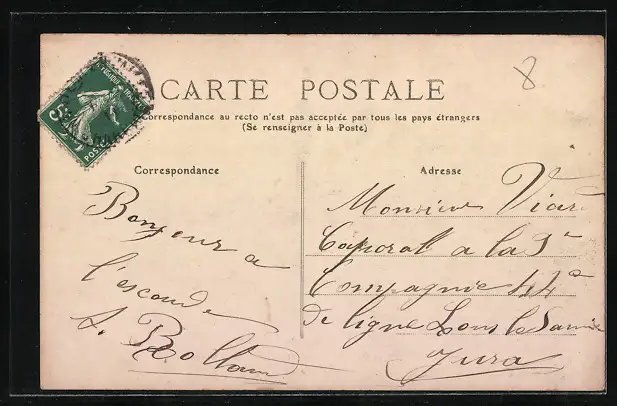 8
CARTE POSTALE
Correspondance au recto n'est pas acceptée par tous les pays étrangers
(Se renseigner à la Poste)
Correspondance
Adresse
Bonjour a
l'escouade
A. Rolland
Monsieur Viard
Caporal a la 3e
Compagnie 44e
de ligne Lons le Saunier
Jura
5c
POSTES